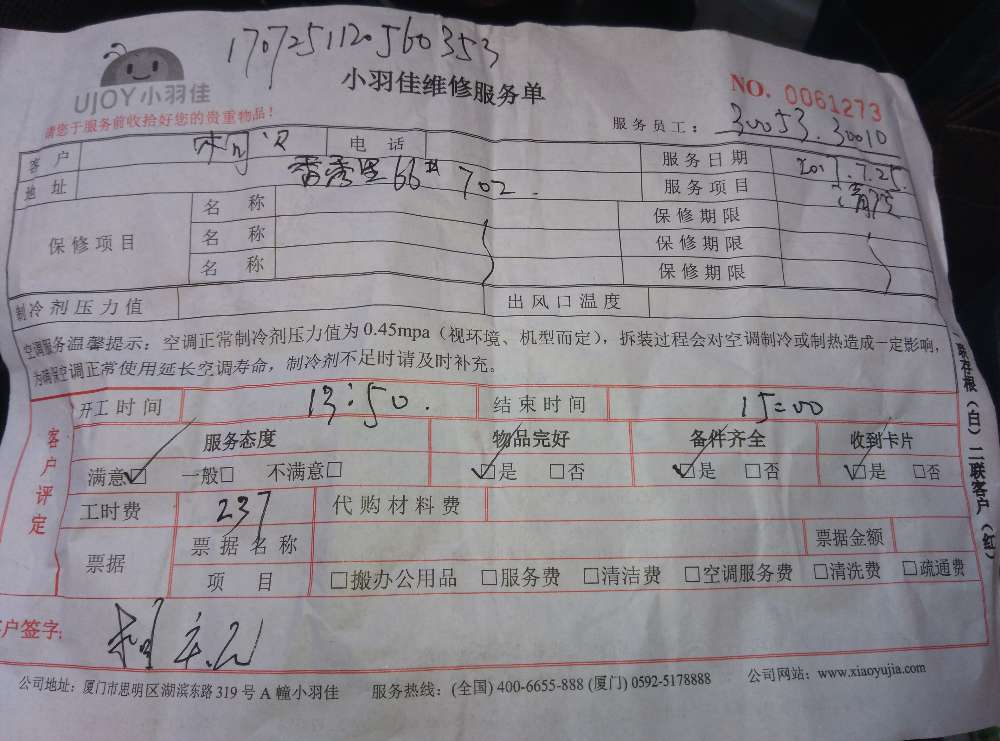 170725112056​0353
UJOY小羽佳
小羽佳维修服务单
NO. 0061273
请您于服务前收拾好您的贵重物品！
服务员工： 30053.30010
客户 电话 服务日期 2017.7.25.
地址 香秀里66# 702. 服务项目
保修项目 名称 保修期限
名称 保修期限
名称 保修期限
制冷剂压力值 出风口温度
空调服务温馨提示：空调正常制冷剂压力值为0.45mpa（视环境、机型而定），拆装过程会对空调制冷或制热造成一定影响，
为确保空调正常使用延长空调寿命，制冷剂不足时请及时补充。
客户评定
开工时间 13:50. 结束时间 15:00
服务态度 物品完好 备件齐全 收到卡片
满意☑ 一般□ 不满意□ ☑是 □否 ☑是 □否 ☑是 □否
工时费 237 代购材料费
票据 票据名称 票据金额
项目 □搬办公用品 □服务费 □清洁费 □空调服务费 □清洗费 □疏通费
客户签字：
公司地址：厦门市思明区湖滨东路319号A幢小羽佳 服务热线：(全国) 400-6655-888 (厦门) 0592-5178888 公司网站：www.xiaoyujia.com
联存根（白）二联客户（红）